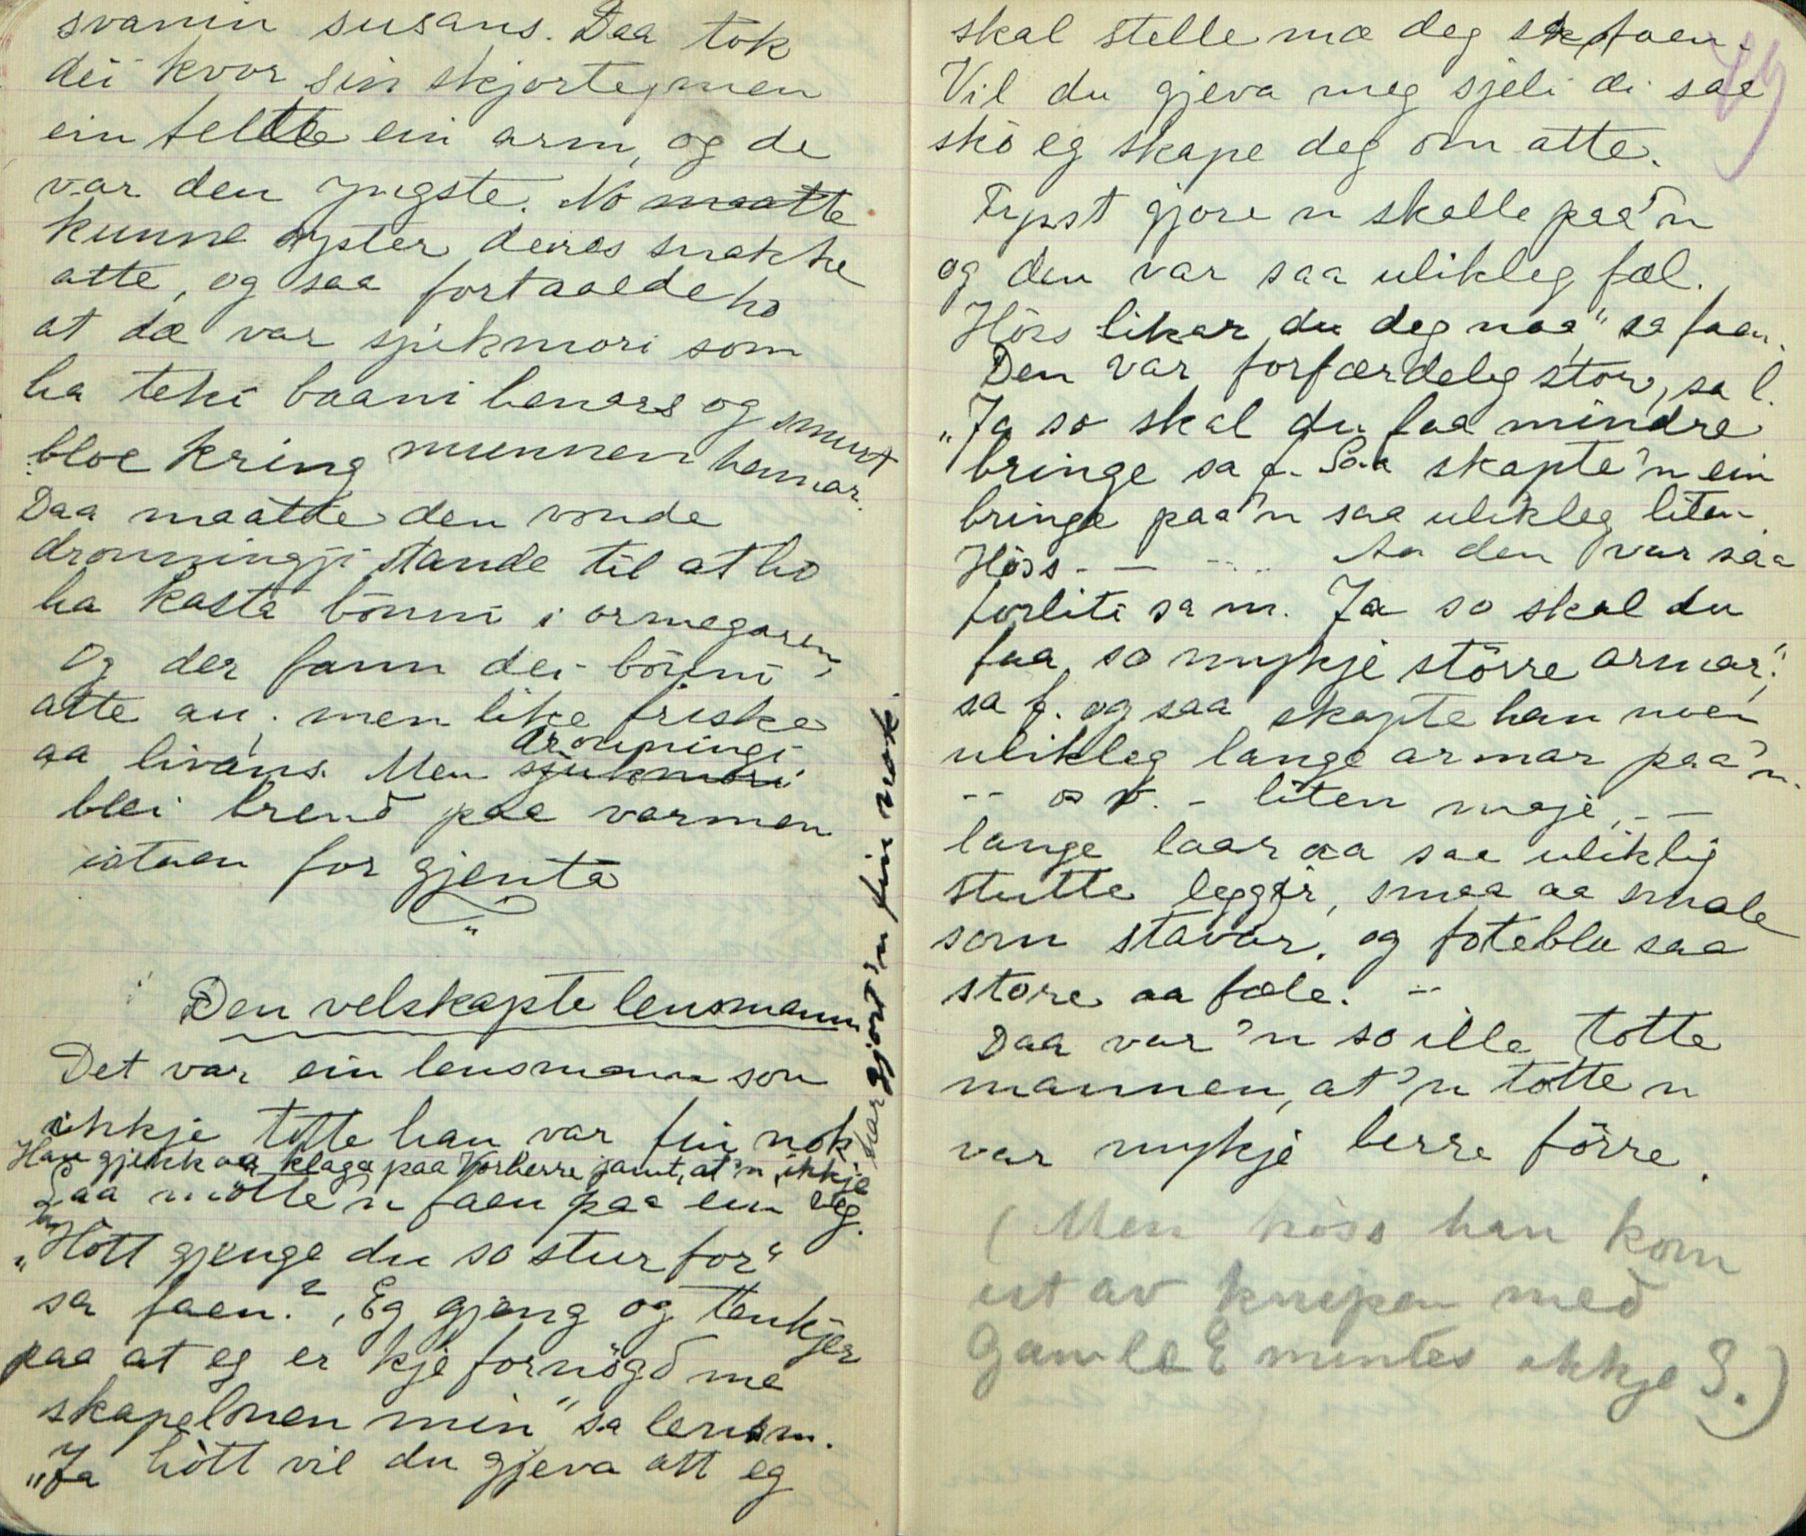 svanin susans. Daa tok
dei kvor sin skjorte, men
ein feltte ein arm, og de
var den yngste. No maatte
kunne syster deires snakke
atte, og saa fortaalde ho
at dæ var sjukmori som
ha teki baani henars og smurt
bloe kring munnen hennar.
Daa maatte den vonde
dronningji stande til at ho
ha kasta bönni i ormegaren,
Og der fann dei bönni
atte au, men like friske
dronningi
aa livans. Men sjukmori
blei brend paa varmen
istaen for gjenta
Den velskapte lensmann
Det var ein lensmann som
ikkje totte han var fin nok
Han gjekk aa klaga paa Vorherre jamt, at'n ikkje
har gjort'n fin nok.
Saa mötte'n faen paa ein veg.
"Hött gjenge du so stur for"
sa faen? "Eg gjeng og tenkjer
paa at eg er kje fornögd me
skapelonen min" sa lensm.
"Ja hött vil du gjeva att eg
49
skal stelle mæ deg sa faen.
Vil du gjeva meg sjeli di saa
sko eg skape deg om atte.
Fyrst gjore n skalle paa'n
og den var saa ulikleg fæl.
Höss likar du deg naa" sa faen.
Den var forfærdeleg stor, sa l.
"Ja so skal du faa mindre
bringe sa f. Saa skapte'n ein
bringe paa'n saa ulikleg liten
Höss - — - .. Aa den var saa
forliti sa m. Ja so skal du
faa so mykje större armar",
sa f. og saa skapte han noen
ulikleg lange armar paa'n.
-- os v. - liten maje, - —
lange laar aa saa uliklig
stutte leggjir, smaa aa smale
som stavar, og foteblu saa
store aa fæle. --
Daa var'n so ille totte
mannen, at'n totte n
var mykje berre förre.
(Men höss han kom
ut av knipen med
Gamle E mintes ikkje S.)